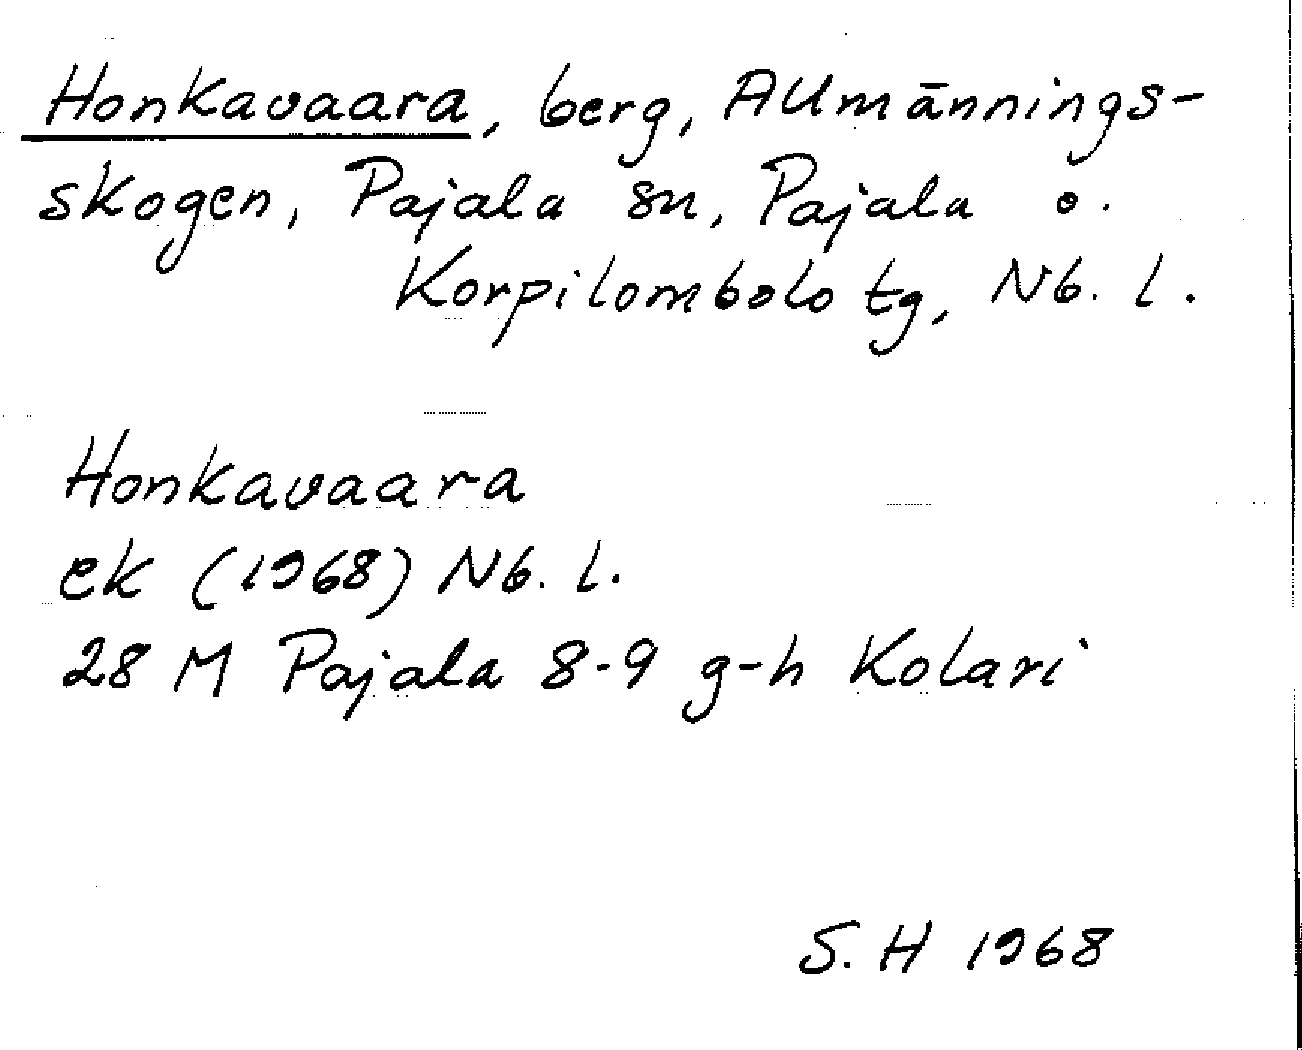 Honkavaara, berg, Allmännings-
skogen, Pajala sn, Pajala o.
Korpilombolo tg, Nb. l.
Honkavaara
ek (1968) Nb. l.
28 M Pajala 8-9 g-h Kolari
S. H 1968